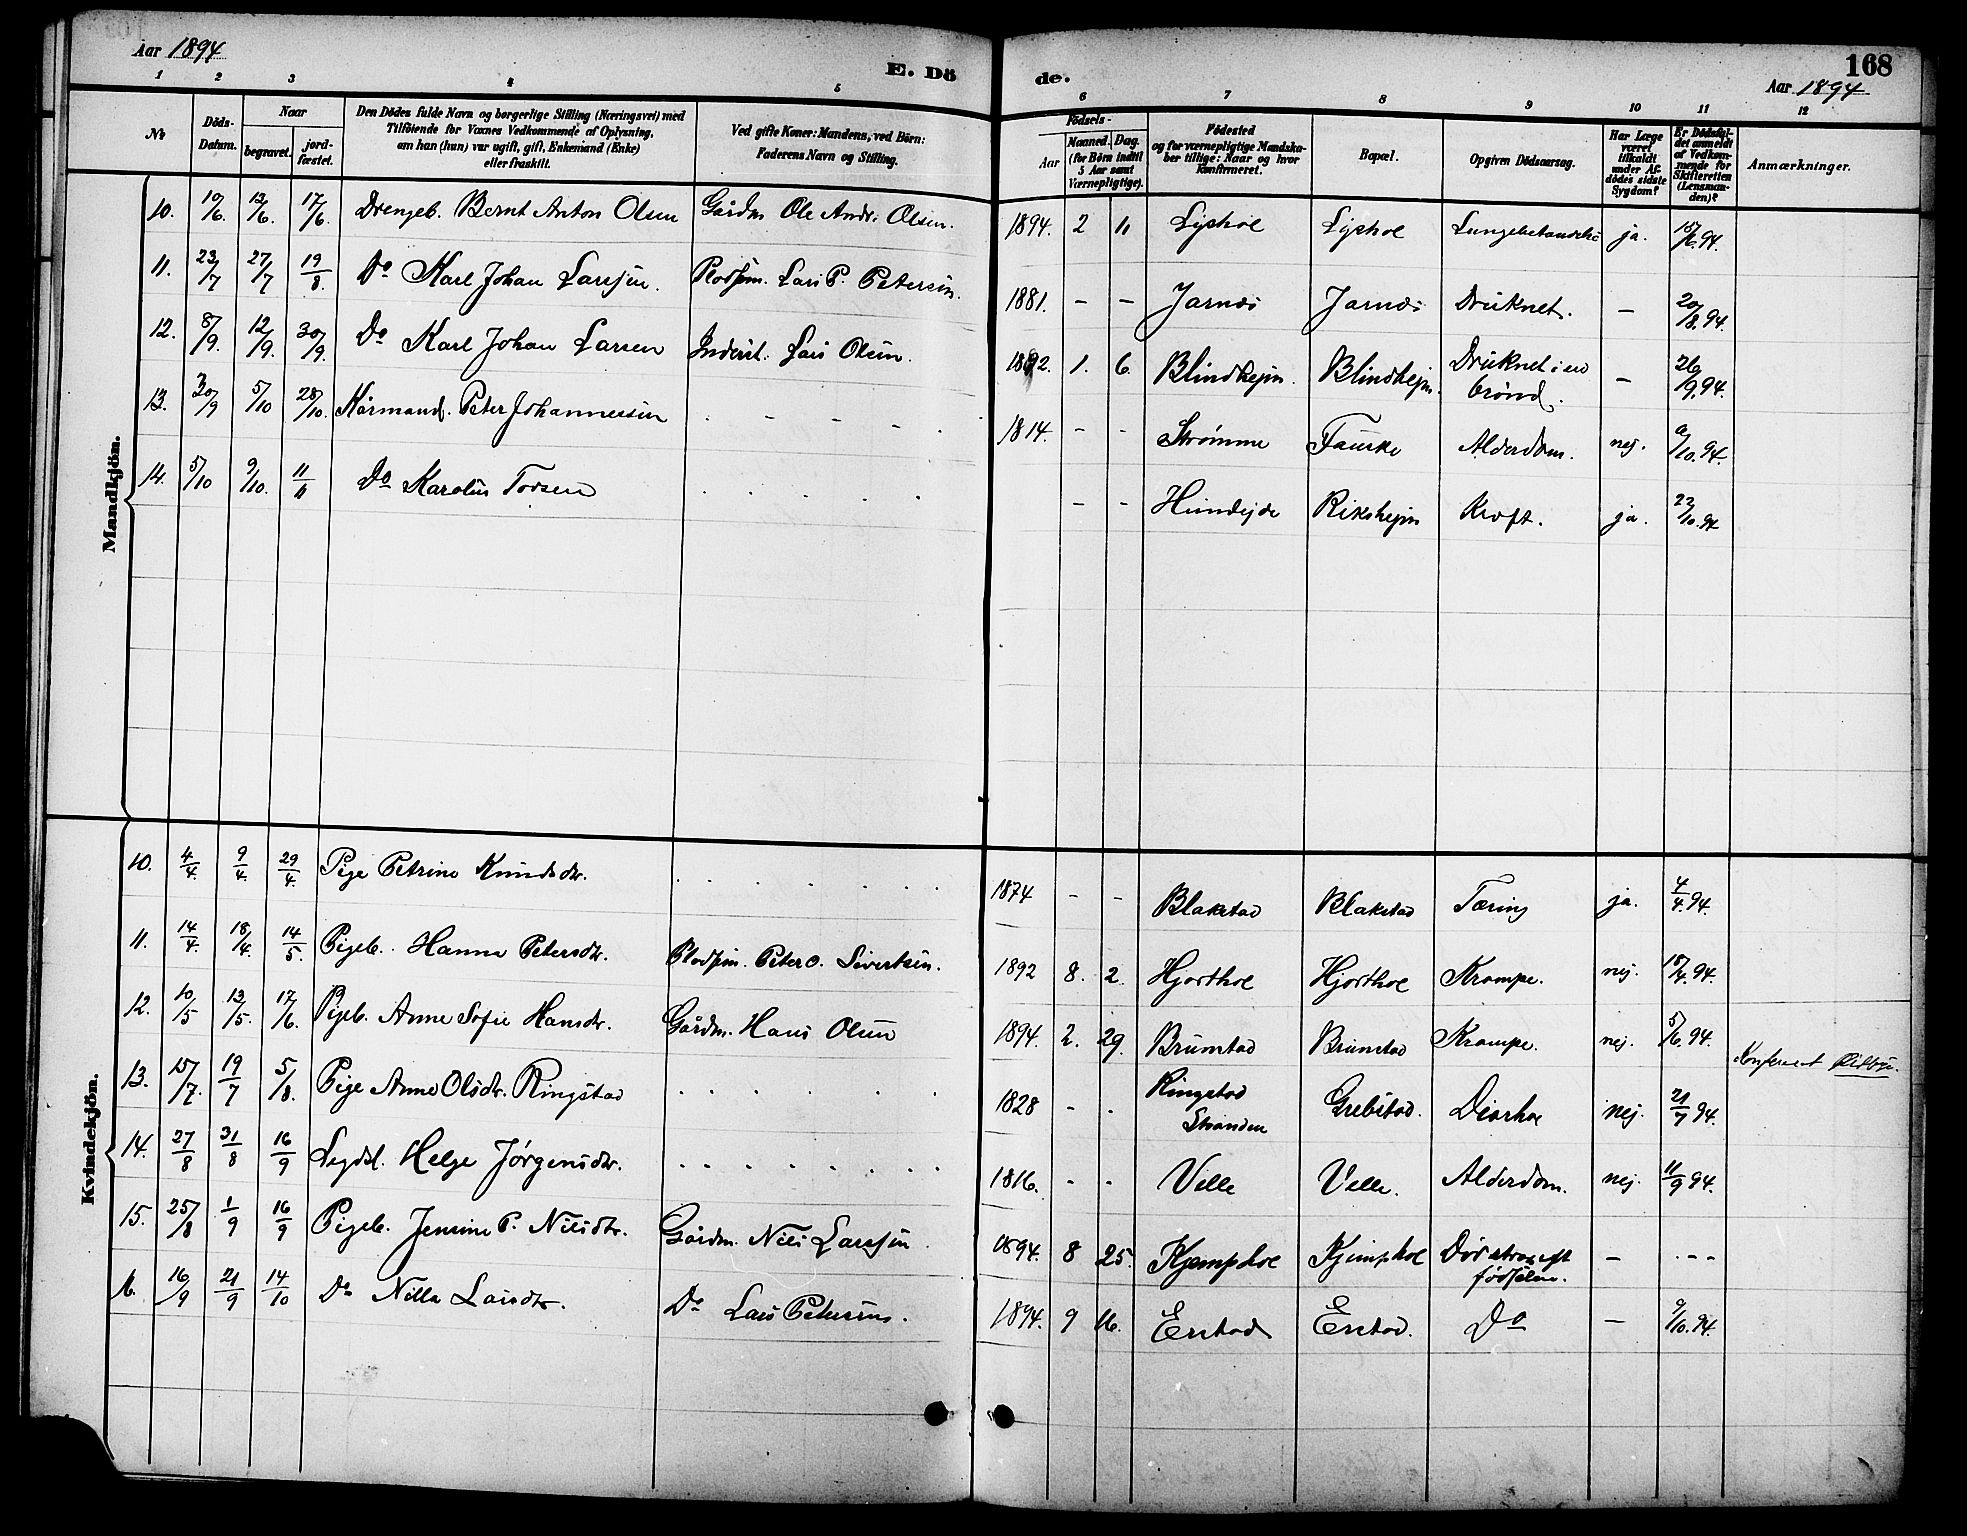 Aar 1894
E. Dö
de.
168
Aar 1894
1 2 3 4 5 6 7 8 9 10 11 12
No
Döds-Datum.
Naar
begravet.
jord-fæstet.
Den Dödes fulde Navn og borgerlige Stilling (Næringsvei) med
Tilföiende for Voxnes Vedkommende af Oplysning,
om han (hun) var ugift, gift, Enkemand (Enke)
eller fraskilt.
Ved gifte Koner: Mandens, ved Börn:
Faderens Navn og Stilling.
Födsels-
Aar
Maaned. Dag.
(for Börn indtil
5 Aar samt
Værnepligtige).
Födested
og for værnepligtige Mandska-
ber tillige: Naar og hvor
konfirmeret.
Bopæl.
Opgiven Dödsaarsag.
Har Læge
været
tilkaldt
under Af-
dödes sidste
Sygdom?
Er Dödsfal-
det anmeldt
af Vedkom-
mende for
Skifteretten
(Lensman-
den)?
Anmærkninger.
Mandkjön.
10. 10/6. 13/6. 17/6. Drengeb. Bernt Anton Olsen Gårdm. Ole Andr. Olsen. 1894. 2 11 Lyshol Lyshol ja. 94.
11. 23/7 27/7 19/8. Do Karl Johan Larssen. Lars P. Petersen. 1881. – – Jarnæs Jarnæs Druknet. – 20/8. 94.
12. 8/9. 12/9. 30/9. Do Karl Johan Larsen Inderst. Lars Olsen. 1. 6. Blindhejm. Blindhejm. Druknet i en brønd. – 26/9. 94.
13. 30/9 5/10 28/10. Kårmand. Peter Johannessen 1814. - - Strømme Alderdom. nej. 9/10. 94.
14. 5/10 9/10. 11/11 Do Karolus Torsen - - Hundejde Rikshejm Kræft. ja. 23/10. 94
Kvindekjön.
10. 4/4. 9/4. 29/4. Pige Petrine Knudsdtr. 1874 - - Blakstad Blakstad Tæring ja. 4/4. 94.
11. 14/4. 18/4. 14/5. Pigeb. Hanna Petersdtr. Peter O. Sivertsen. 1892 8. 2. Hjorthol Hjorthol Krampe. nej. 18/4. 94.
12. 10/5 13/5. 17/6. Pigeb. Anne Sofie Hansdtr. Gårdm. Hans Olsen 1894. 2. 29. Brunstad Brunstad Krampe. nej. 5/6. 94.
13. 15/7. 19/7 5/8. Pige Anne Olsdtr. Ringstad 1828 - . Ringstad Stranden Grebstad. Diarhe nej. 21/7 94.
14. 27/8 31/8 16/9 Legdsl. Helge Jørgensdtr. 1816. - - Velle Velle. Alderdom. nej. 11/9 94.
15. 25/8 1/9 16/9 Pigeb. Jensine P. Nilsdtr. Gårdm. Nils Larssen 1894. 8 25. Kjemphol Kjemphol Død strax eft fødselen. – - - -
16. 16/9 21/9 14/10 Do Nilla Larsdtr. Do Lars Petersen. 1894. 9 16. Erstad Erstad. Do – 9/10. 94.